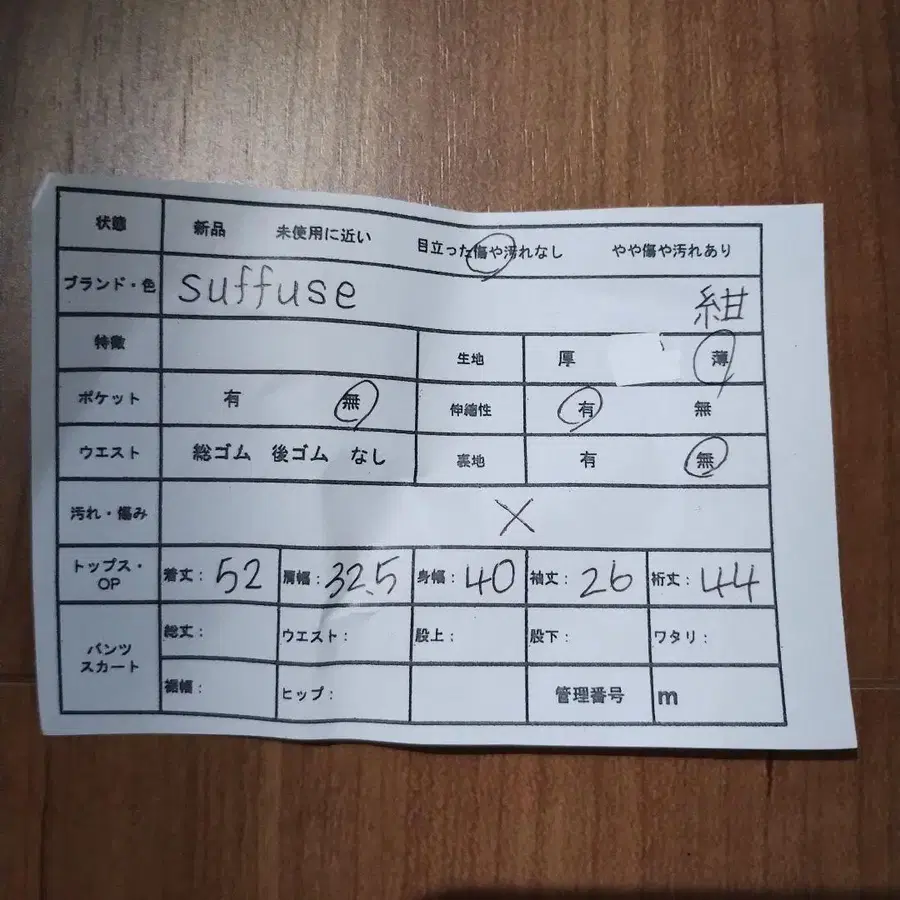 状態 新品 未使用に近い 目立った傷や汚れなし やや傷や汚れあり
ブランド・色 suffuse 紺
特徴 生地 厚 薄
ポケット 有 無 伸縮性 有 無
ウエスト 総ゴム 後ゴム なし 裏地 有 無
汚れ・傷み ×
トップス・OP 着丈: 52 肩幅: 32.5 身幅: 40 袖丈: 26 裄丈: 44
パンツ スカート 総丈: ウエスト: 股上: 股下: ワタリ:
裾幅: ヒップ: 管理番号 m